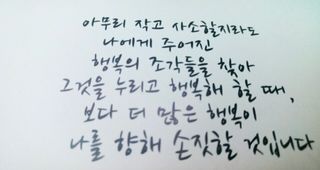 아무리 작고 사소할지라도
나에게 주어진
행복의 조각들을 찾아
그것을 누리고 행복해 할 때,
보다 더 많은 행복이
나를 향해 손짓할 것입니다